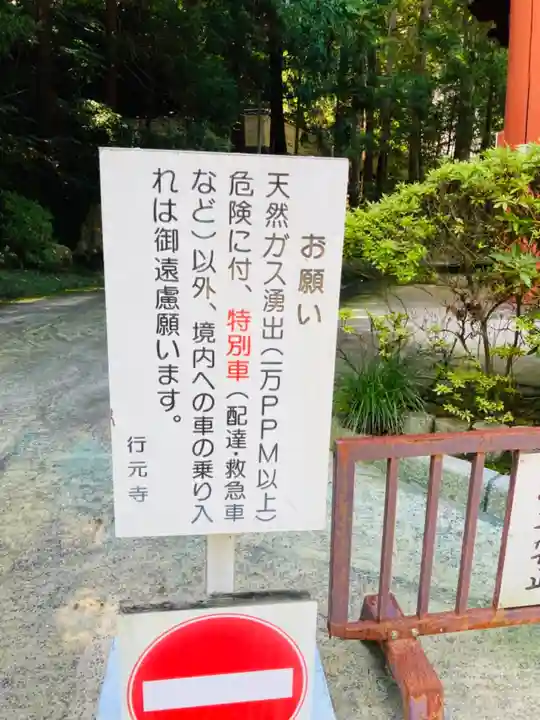 お願い
天然ガス湧出(二万PPM以上)
危険に付、特別車(配達・救急車
など)以外、境内への車の乗り入
れは御遠慮願います。
行元寺